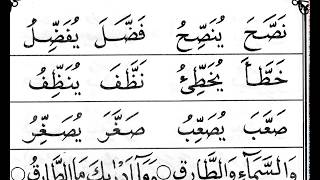 نَصَّحَ يُنَصِّحُ فَضَّلَ يُفَضِّلُ
خَطَّأَ يُخَطِّئُ نَظَّفَ يُنَظِّفُ
صَعَّبَ يُصَعِّبُ صَغَّرَ يُصَغِّرُ
وَالسَّمَآءِ وَالطَّارِقِ ○ وَمَآ اَدْرٰىكَ مَا الطَّارِقُ ○